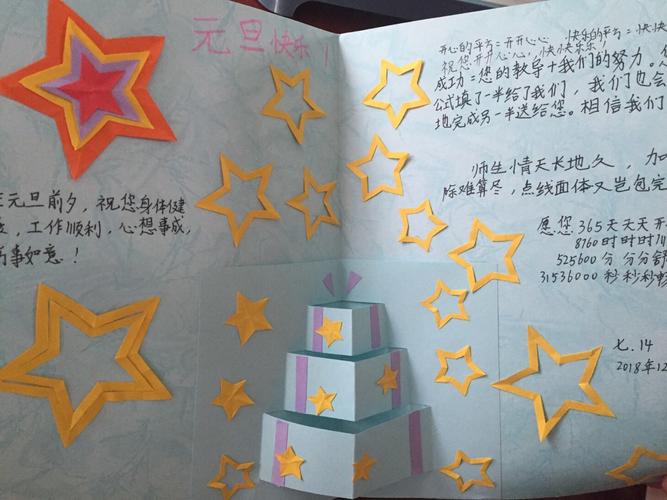 元旦快乐！
元旦前夕，祝您身体健
，工作顺利，心想事成，
事如意！
开心的平方=开开心心 快乐的平方=快快
祝您开开心心，快快乐乐！
成功=您的教导+我们的努力。
公式填了一半给了我们，我们也会
地完成另一半送给您。相信我们
师生情天长地久，加
除难算尽，点线面体又岂包完
愿您365天天天开
8760时时时
525600分分分舒
31536000秒秒秒畅
七.14
2018年12